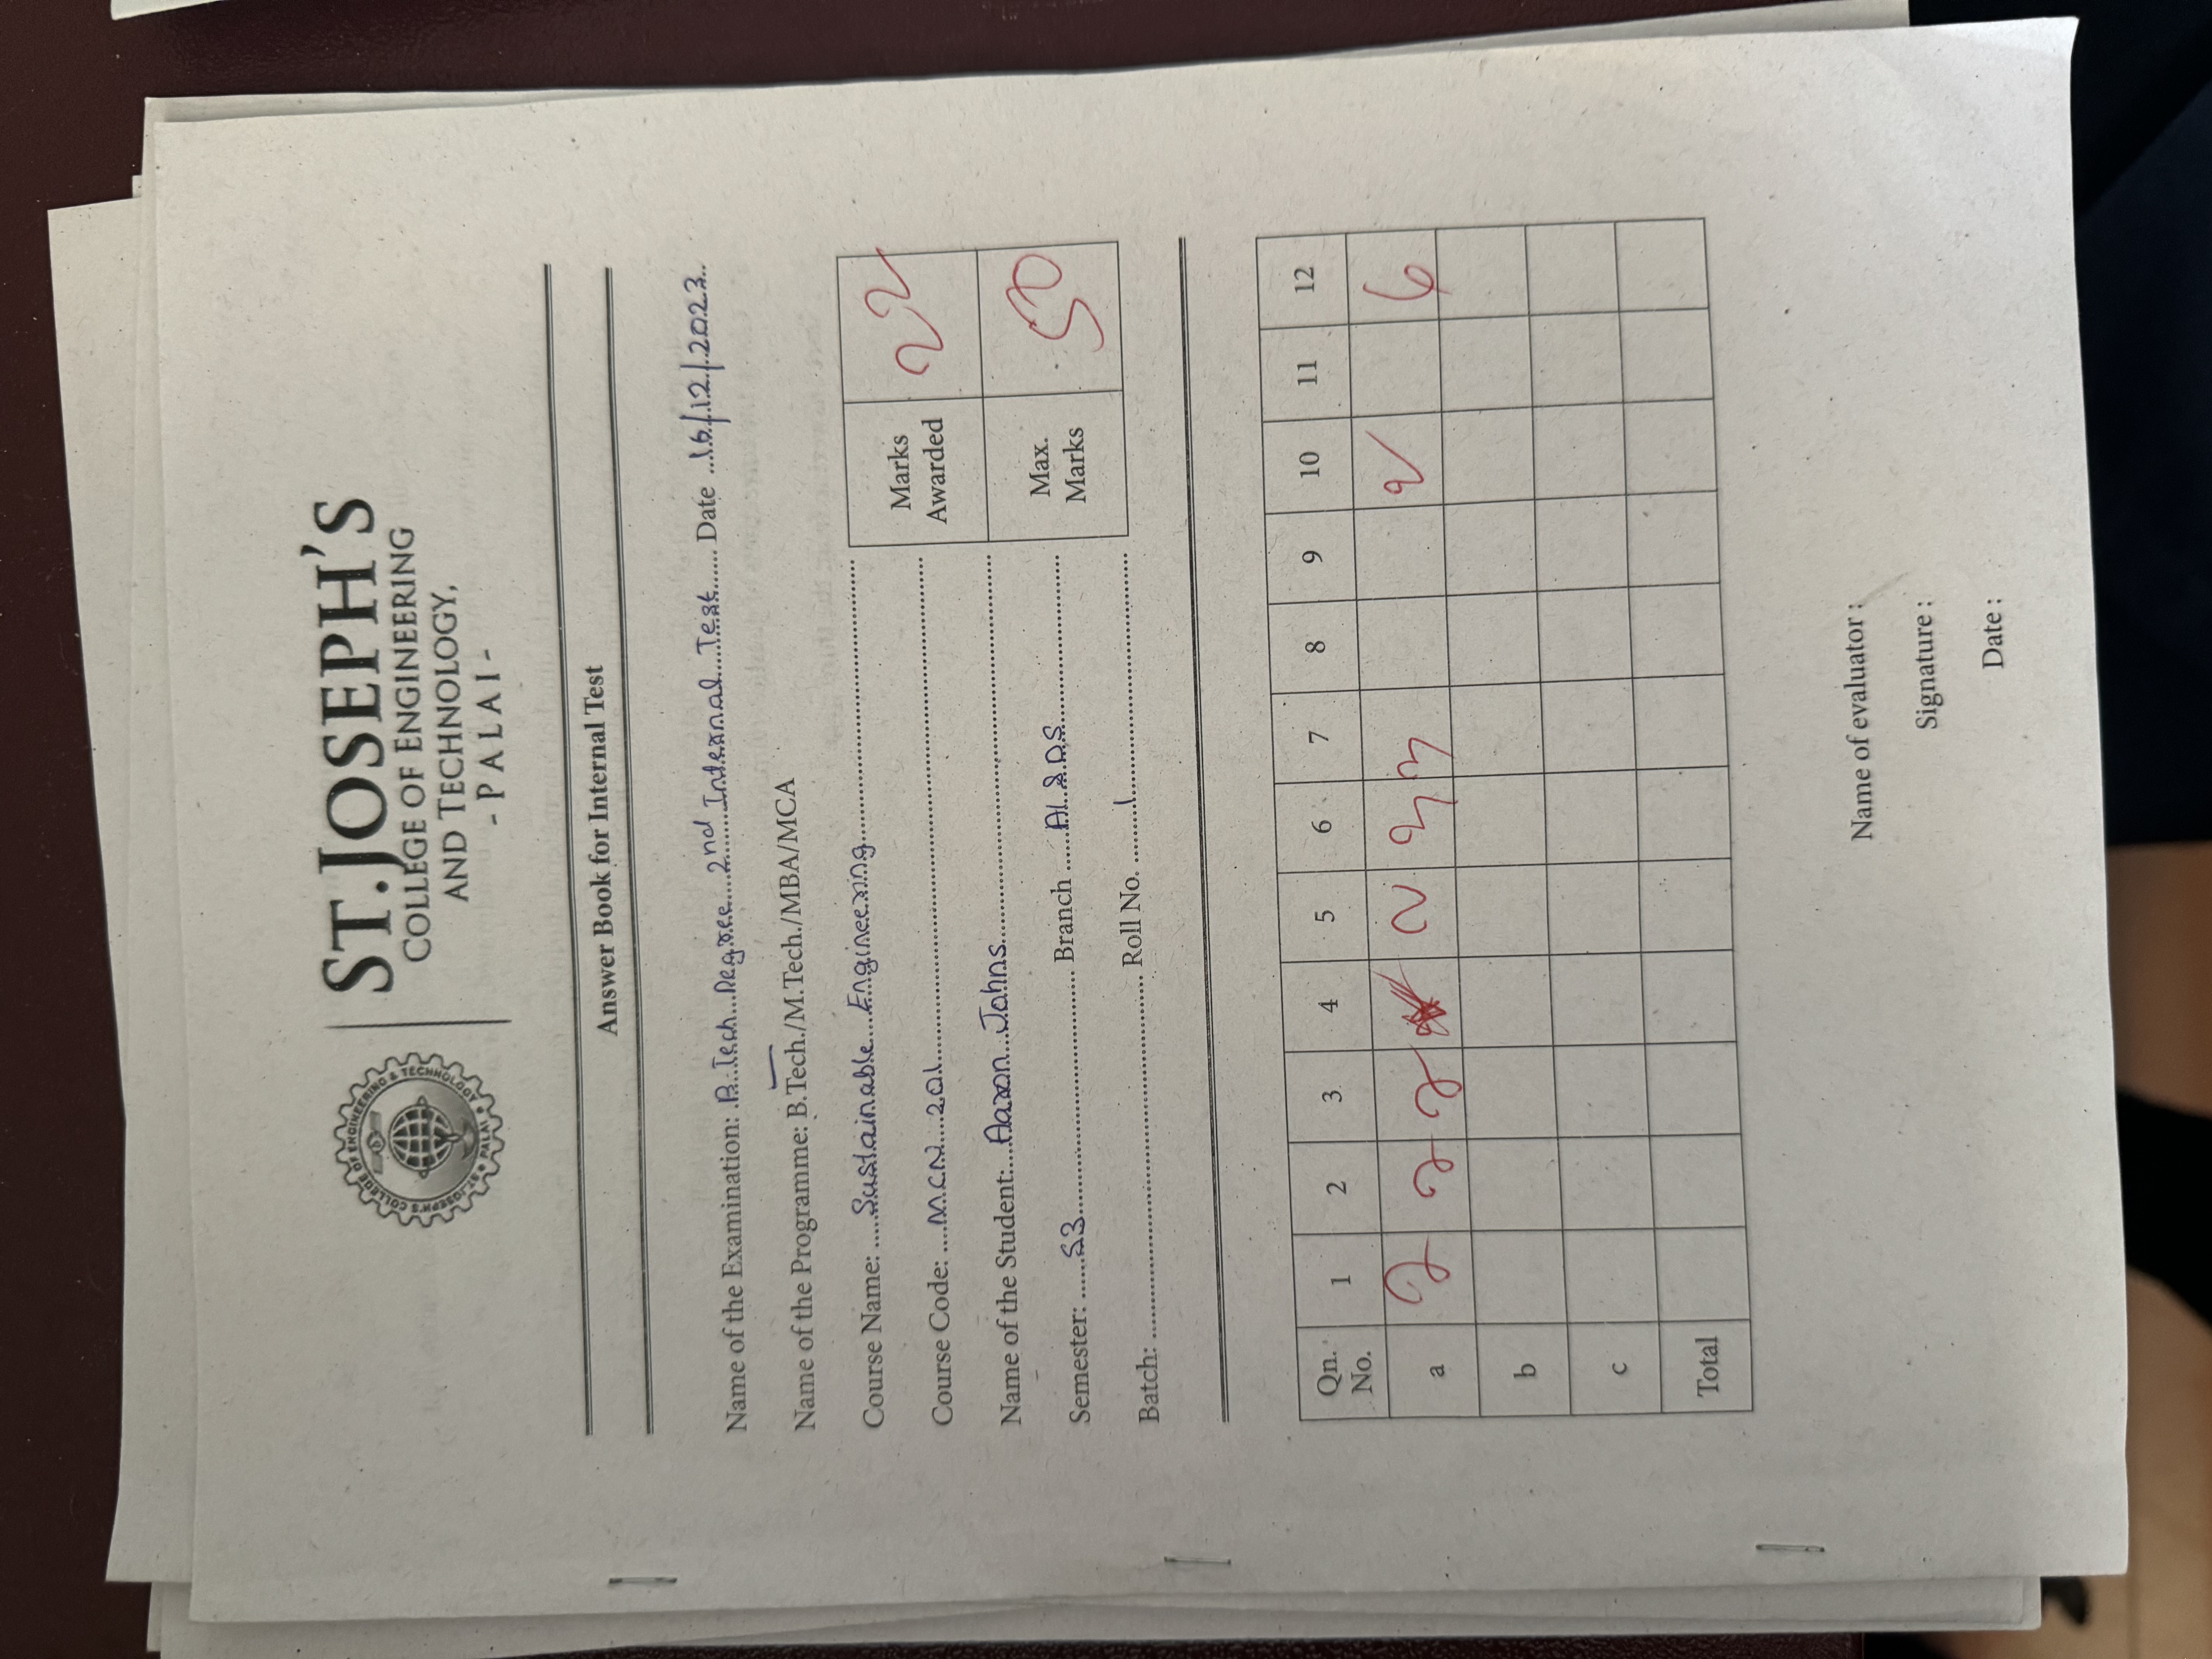 ST. JOSEPH'S COLLEGE OF ENGINEERING & TECHNOLOGY
PALAI
ST.JOSEPH'S
COLLEGE OF ENGINEERING
AND TECHNOLOGY,
-PALAI-
Answer Book for Internal Test
Name of the Examination: B Tech Degree 2nd Internal Test Date 16/12/2023
Name of the Programme: B.Tech./M.Tech./MBA/MCA
Course Name: Sustainable Engineering
Course Code: MCN 201
Name of the Student: Aaron Johns
Semester: S3 Branch AI & DS
Batch: Roll No. 1
Marks Awarded 22
Max. Marks 50
Qn. No. 1 2 3 4 5 6 7 8 9 10 11 12
a 2 2 2 2 3 3 2 6
b
c
Total
Name of evaluator :
Signature :
Date :